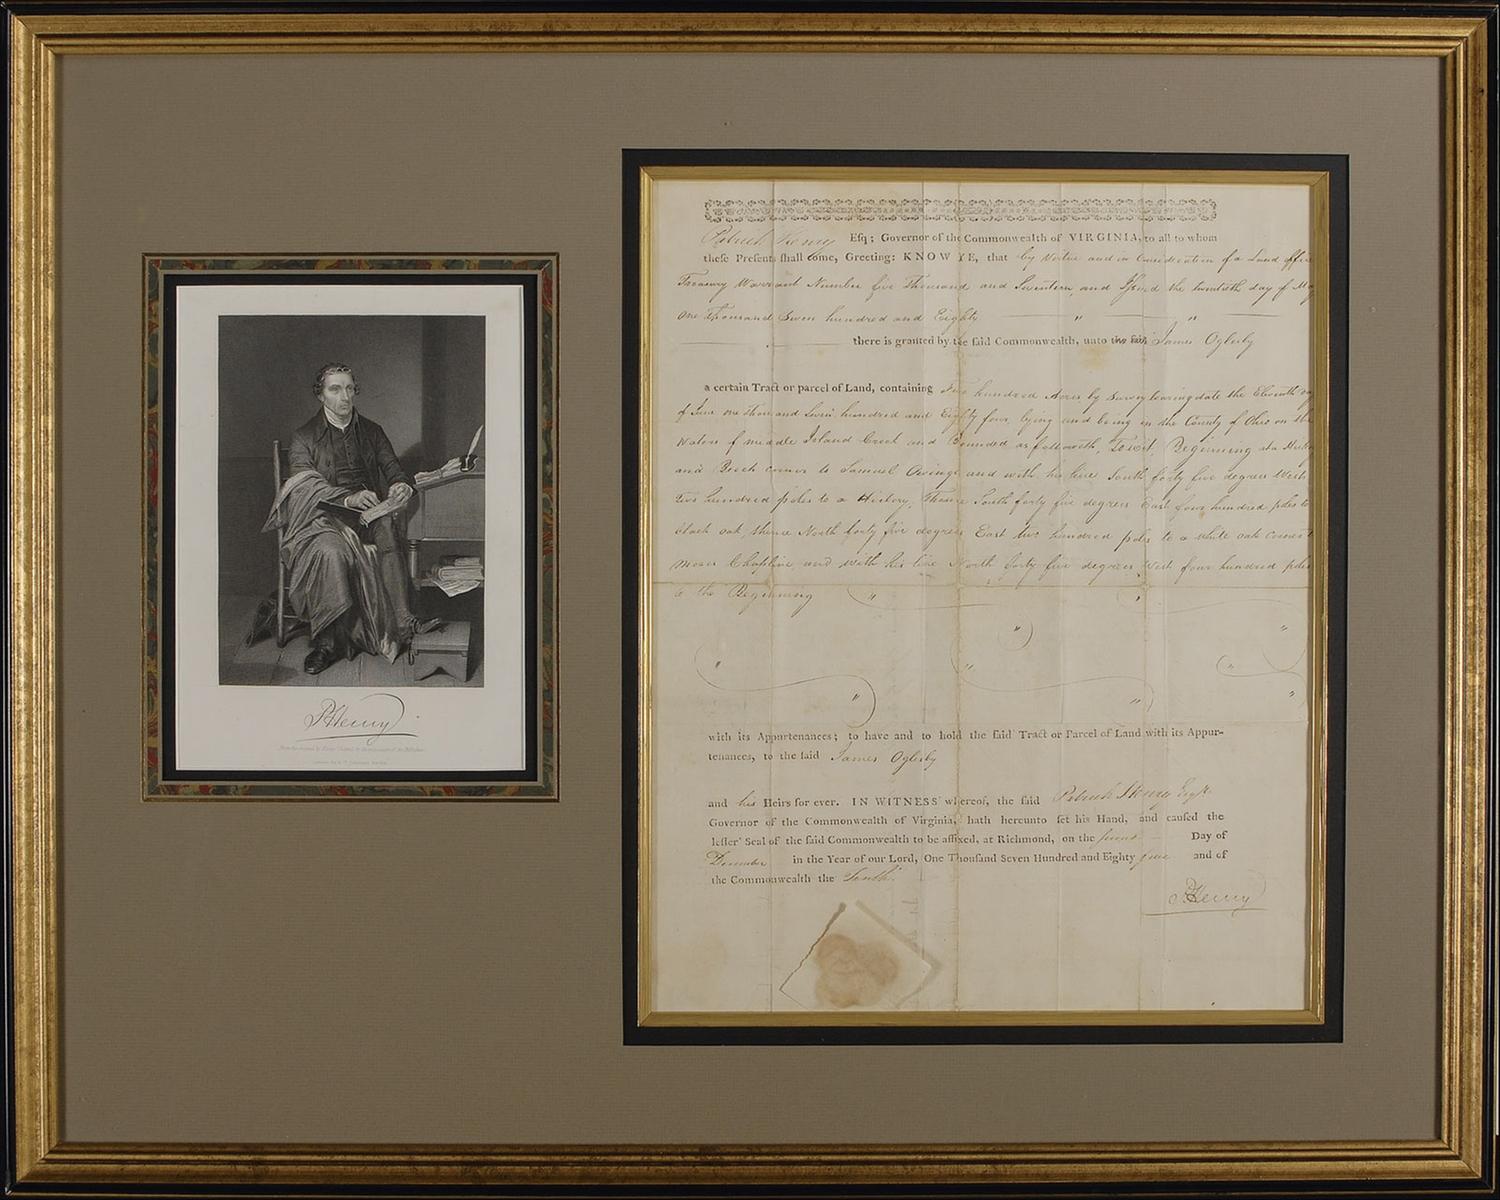 P Henry
Patrick Henry Esq; Governor of the Commonwealth of VIRGINIA, to all to whom
theſe Preſents ſhall come, Greeting: KNOW YE, that by Virtue and in Consideration of a Land office
Treasury Warrant Number five Thousand and Seventeen, and Issued the twentieth day of
one thousand Seven hundred and Eighty
there is granted by the ſaid Commonwealth, unto the ſaid James Oglesby
a certain Tract or parcel of Land, containing hundred Acres by Survey bearing date the Eleventh day
of June one thousand Seven hundred and Eighty four, lying and being in the County of Ohio on the
Waters of middle Island Creek and Bounded as followeth, Towit, Beginning at a
and Beech corner to Samuel Owings and with his line South forty five degrees West
two hundred poles to a Hickory, Thence South forty five degrees East four hundred poles to
black oak, thence North forty five degrees East two hundred poles to a white oak corner
Moses Chapline and with his line North forty five degrees West four hundred poles
to the Beginning
with its Appurtenances; to have and to hold the ſaid Tract or Parcel of Land with its Appur-
tenances, to the ſaid James Oglesby
and his Heirs for ever. IN WITNESS whereof, the ſaid Patrick Henry Esqr
Governor of the Commonwealth of Virginia, hath hereunto ſet his Hand, and cauſed the
leſſer Seal of the ſaid Commonwealth to be affixed, at Richmond, on the Day of
December in the Year of our Lord, One Thouſand Seven Hundred and Eighty five and of
the Commonwealth the Tenth.
P Henry